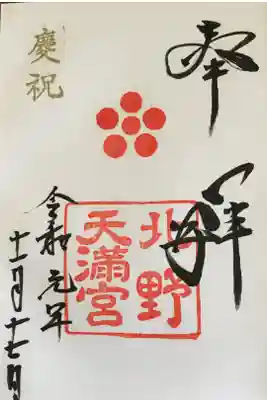 奉拝
北野
天満宮
慶祝
令和元年
十一月十七日